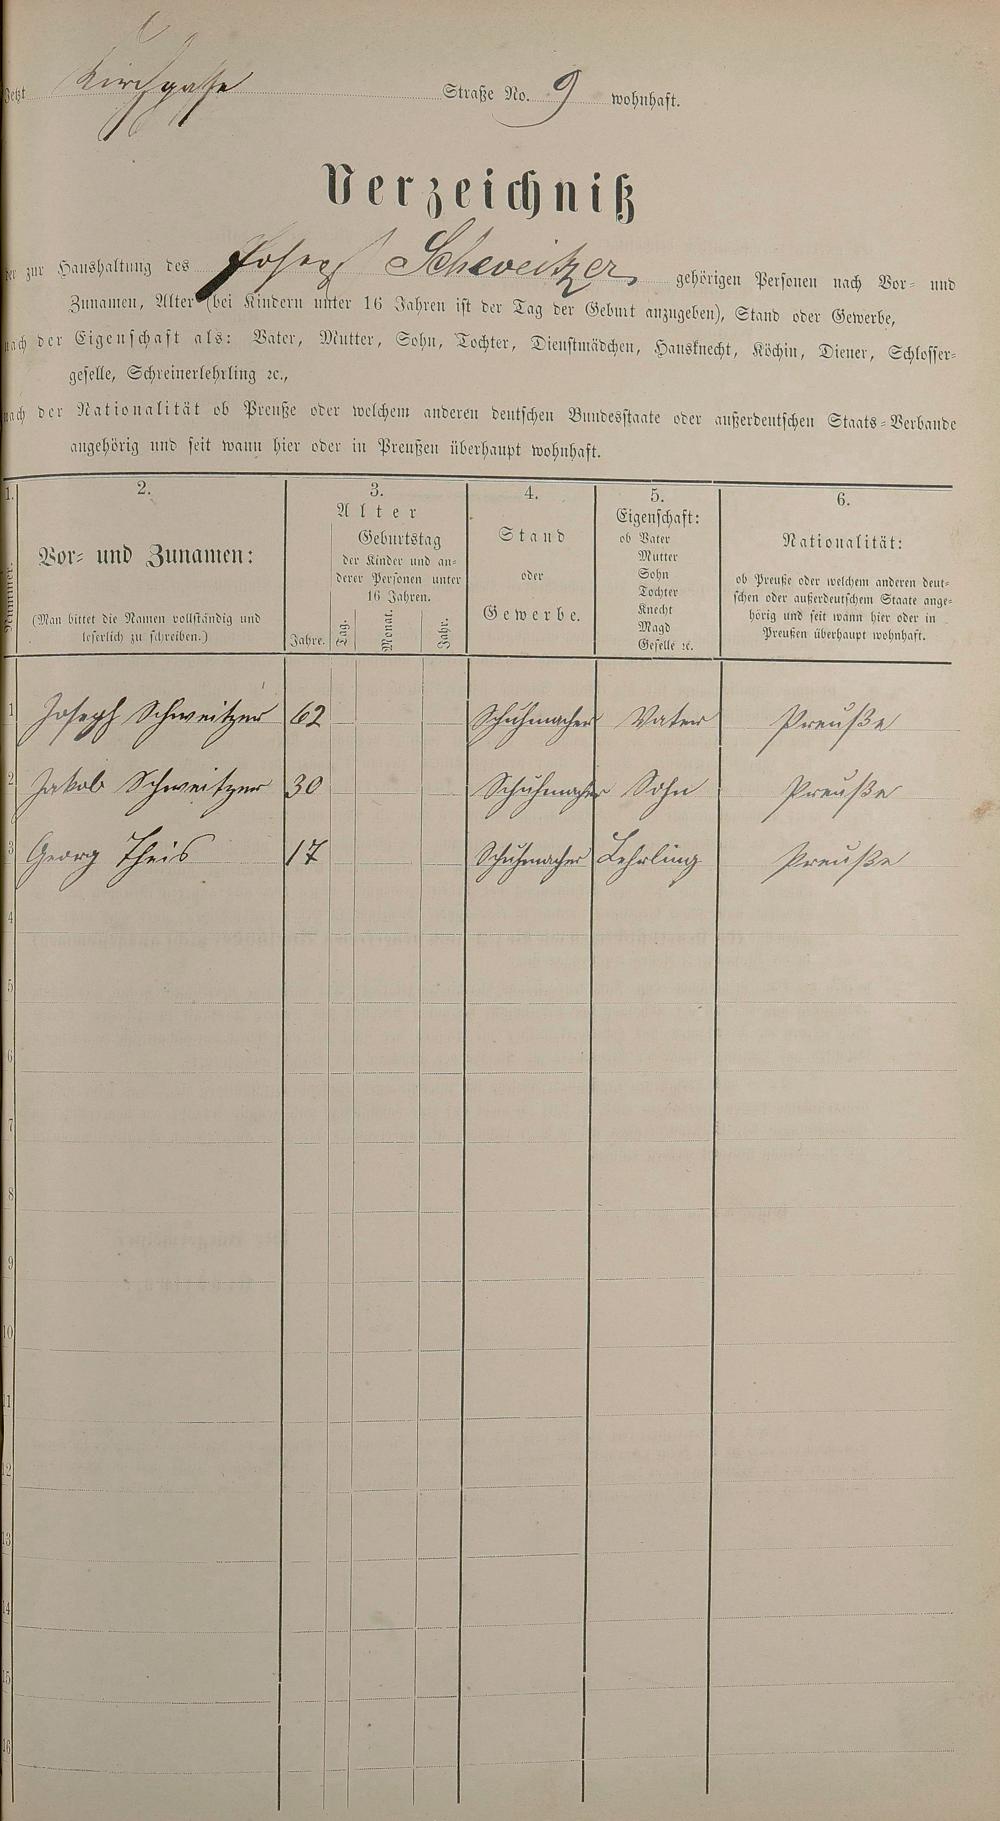 Jetzt Kirchgasse Straße No. 9 wohnhaft.
Verzeichniß
der zur Haushaltung des Joseph Schweitzer gehörigen Personen nach Vor- und
Zunamen, Alter (bei Kindern unter 16 Jahren ist der Tag der Geburt anzugeben), Stand oder Gewerbe,
nach der Eigenschaft als: Vater, Mutter, Sohn, Tochter, Dienstmädchen, Hausknecht, Köchin, Diener, Schlosser-
geselle, Schreinerlehrling ꝛc.,
nach der Nationalität ob Preuße oder welchem anderen deutschen Bundesstaate oder außerdeutschen Staats-Verbande
angehörig und seit wann hier oder in Preußen überhaupt wohnhaft.
1.
Nummer.
2.
Vor- und Zunamen:
(Man bittet die Namen vollständig und
leserlich zu schreiben.)
3.
Alter
Jahre.
Geburtstag
der Kinder und an-
derer Personen unter
16 Jahren.
Tag.
Monat.
Jahr.
4.
Stand
oder
Gewerbe.
5.
Eigenschaft:
ob Vater
Mutter
Sohn
Tochter
Knecht
Magd
Geselle ꝛc.
6.
Nationalität:
ob Preuße oder welchem anderen deut-
schen oder außerdeutschem Staate ange-
hörig und seit wann hier oder in
Preußen überhaupt wohnhaft.
1 Joseph Schweitzer 62 Schuhmacher Vater Preuße
2 Jakob Schweitzer 30 Schuhmacher Sohn Preuße
3 Georg Theis 17 Schuhmacher Lehrling Preuße
4
5
6
7
8
9
10
11
12
13
14
15
16